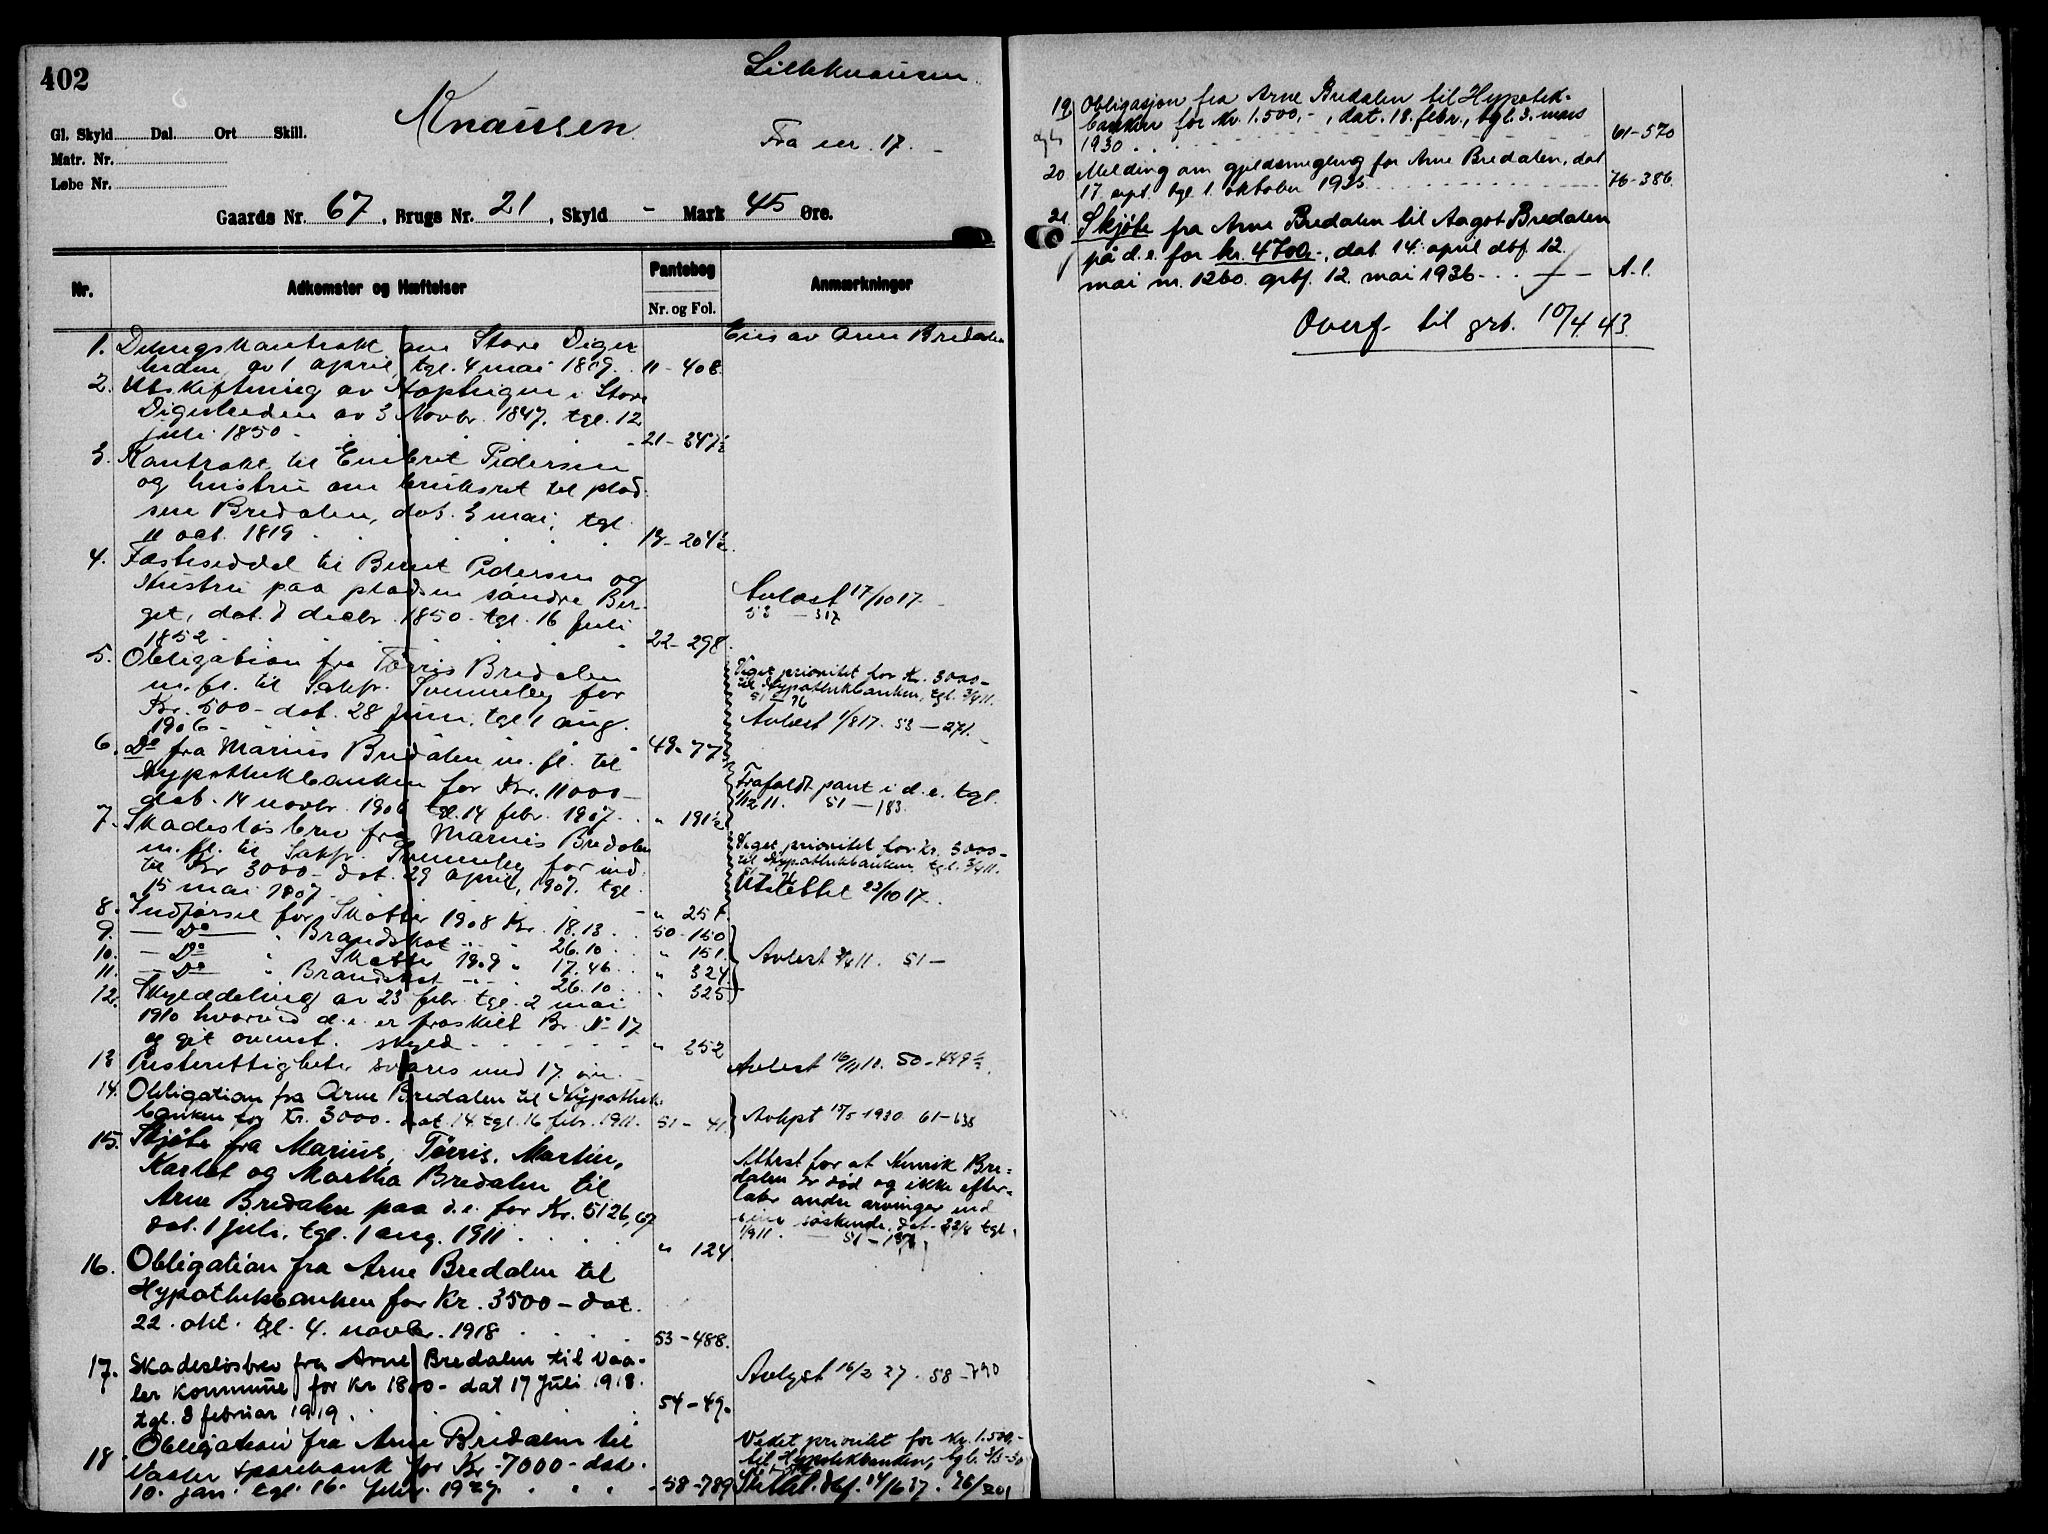 402
Lilleknausen
Knausen
Fra nr. 17.
Gl. Skyld Dal. Ort Skill.
Matr. Nr.
Løbe Nr.
Gaards Nr. 67, Brugs Nr. 21, Skyld - Mark 45 Øre.
Nr. Adkomster og Hæftelser Pantebog Anmærkninger
Nr. og Fol.
Eies av Arne Bredalen
1. Delingskontrakt om Store Diger
heden av 1 april, tgl. 4 mai 1809. 11-408.
2. Utskiftning av i Store
Digerheden av 3 Novbr. 1847, tgl. 12
juli 1850 21-347½
3. Kontrakt til Embret Pedersen
og hustru om bruksret til plad-
sen Bredalen, dat. 3 mai, tgl.
11 oct. 1819 13-204½
4. Fæsteseddel til Bernt Pedersen og
Hustru paa pladsen søndre Ber-
get, dat. 7 decbr. 1850. tgl. 16 Juli
1852 22-298.
Avlæst 17/10 17.
53 - 317
5. Obligation fra Tørris Bredalen
m. fl. til Sakfr. Svenneby for
Kr. 500 - dat. 28 juni, tgl. 1 aug.
1906 49-77
Viget prioritet for Kr. 3000-
til Hypothekbanken, tgl. 3/4 11.
51 - 76
Avlæst 1/8 17. 53 - 271.
6. Do fra Marius Bredalen m. fl. til
Hypothekbanken for Kr. 11000-
dat. 14 novbr. 1906 tgl. 14 febr. 1907. " 191½
Frafaldt pant i d. e. tgl.
1/12 11. 51 - 183.
7. Skadesløsbrev fra Marius Bredalen
m. fl. til Sakfr. Svenneby for ind
til Kr 3000 - dat. 29 april, 1907. tgl.
15 mai 1907 " 251.
Viget prioritet for Kr. 3000-
til Hypothekbanken, tgl. 3/4 11.
Utslettet 22/10 17.
8. Indførsel for Skatter 1908 Kr. 18.13 50-150
9. - Do - " Brandskat " 26.10 " 151.
10. - Do " Skatter 1909 " 17.46 " 324
11. - Do " Brandskat - " - " 26.10 " 325
Avlest 3/4 11. 51 -
12. Skylddeling av 23 febr. tgl. 2 mai
1910 hvorved d. e. er fraskilt Br. No 17
og git ovenst. skyld " 352
13 Presterettigheter svares med 17 øre.
Avlest 16/11 10. 50-489½.
14. Obligation fra Arne Bredalen til Hypothek-
banken for Kr. 3000. dat. 14. tgl. 16 febr. 1911. 51 - 41.
Avlyst 15/5 1930 61-638
15. Skjøte fra Marius, Tørris, Martin,
Karlot og Martha Bredalen til
Arne Bredalen paa d. e. for Kr. 5126,67
dat. 1 juli, tgl. 1 aug. 1911 " 124.
Attest for at Henrik Bre-
dalen er død og ikke efter-
later andre arvinger end
sine søskende, dat. 22/8 tgl.
1/9 11. 51 -
16. Obligation fra Arne Bredalen til
Hypothekbanken for Kr. 3500 - dat.
22. okt. tgl. 4. novbr. 1918 53-488.
17. Skadesløsbrev fra Arne Bredalen til Vaa-
ler Kommune for kr 1800 - dat 17 Juli 1918.
tgl. 3 februar 1919. 54-49.
Avlyst 16/2 27. 58-790
18 Obligation fra Arne Bredalen til
Vaaler sparebank for Kr. 7000 - dat.
10. jan. tgl. 16. febr. 1927. 58-789
Veket prioritet for kr. 1.500,-
til Hypotekbanken, tgl. 3/3-30
dbf. 14/6 37. 76/201
19 Obligasjon fra Arne Bredalen til Hypotek-
banken for kr. 1.500,-, dat. 18. febr., tgl. 3. mars
1930 61-570
20 Melding om gjeldsmegling for Arne Bredalen, dat
17. sept. tgl. 1. oktober 1935 76-386.
21 Skjøte fra Arne Bredalen til Aagot Bredalen
på d. e. for kr. 4700,-, dat. 14. april dbf. 12.
mai nr. 1260. grbf. 12. mai 1936 A. 1.
Overf. til grb. 10/4 43.